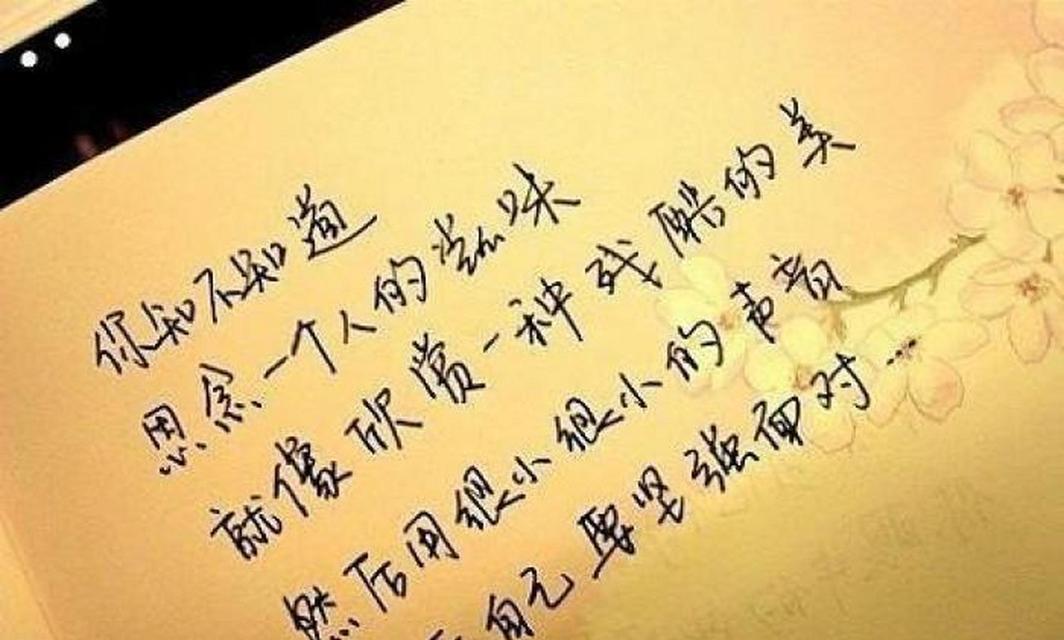 你知不知道
思念一个人的滋味
就像欣赏一种残酷的美
然后用很小很小的声音
自己要坚强面对…